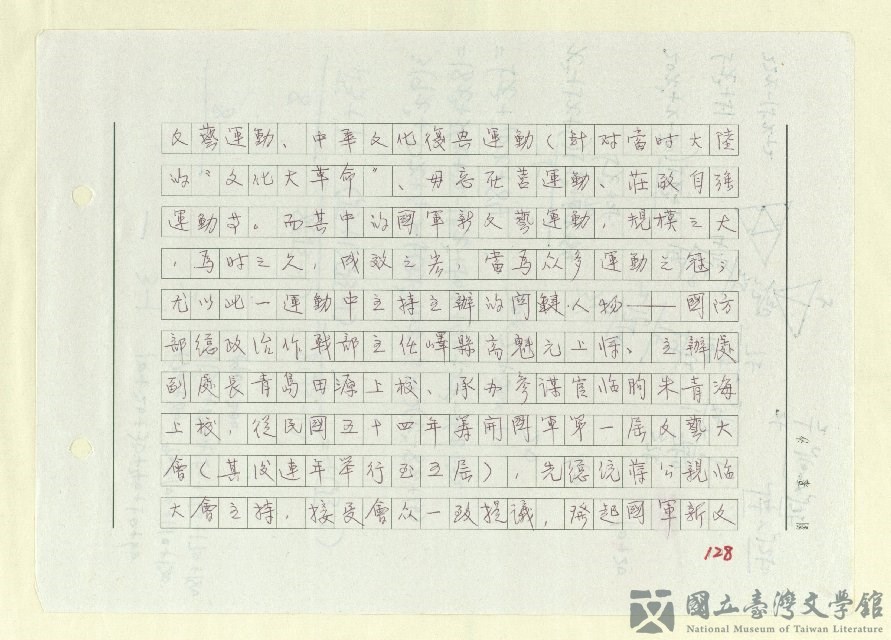 文藝運動、中華文化復興運動（針对當时大陸
的“文化大革命”、毋忘在莒運動、莊敬自强
運動等。而其中的國軍新文藝運動，規模之大
，為时之久，成效之宏，當為众多運動之冠；
尤以此一運動中主持主辦的関鍵人物——國防
部總政治作戰部主任嶧縣高魁元上將、主辦處
副處長青島田源上校、承办參謀官临朐朱青海
上校，從民國五十四年筹開國軍第一屆文藝大
會（其後連年举行至五屆），先總統蔣公親临
大會主持，接受會众一致提議，發起國軍新文
128
國立臺灣文學館
National Museum of Taiwan Literature